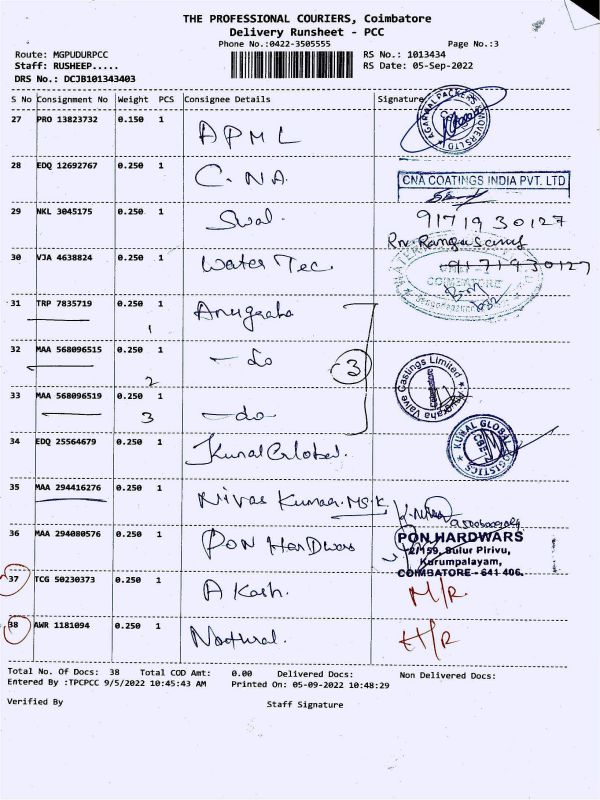 THE PROFESSIONAL COURIERS, Coimbatore
Delivery Runsheet - PCC
Phone No.:0422-3505555 Page No.:3
Route: MGPUDURPCC RS No.: 1013434
Staff: RUSHEEP..... RS Date: 05-Sep-2022
DRS No.: DCJB101343403
S No Consignment No Weight PCS Consignee Details Signature
27 PRO 13823732 0.150 1 APML AGARWAL PACKERS MOVERS LTD
28 EDQ 12692767 0.250 1 C.N.A. CNA COATINGS INDIA PVT. LTD
29 NKL 3045175 0.250 1 Swal. 9171930127
Rn. Rangasamy
30 VJA 4638824 0.250 1 Water Tec. 9171930127
COIMBATORE
31 TRP 7835719 0.250 1 Anugraha
1
32 MAA 568096515 0.250 1 - do 3
2
Anugraha Valve Castings Limited Coimbatore
33 MAA 568096519 0.250 1 - do -
3
34 EDQ 25564679 0.250 1 Kunal Global. KUNAL GLOBAL LOGISTICS CBE
35 MAA 294416276 0.250 1 Nivas Kumar.MS.K
36 MAA 294080576 0.250 1 PON HarDwars PON HARDWARS
2/159, Sulur Pirivu,
Kurumpalayam,
COIMBATORE - 641 406.
37 TCG 50230373 0.250 1 Akash. M/R
38 AWR 1181094 0.250 1 Natural. H/R
Total No. Of Docs: 38 Total COD Amt: 0.00 Delivered Docs: Non Delivered Docs:
Entered By :TPCPCC 9/5/2022 10:45:43 AM Printed On: 05-09-2022 10:48:29
Verified By Staff Signature